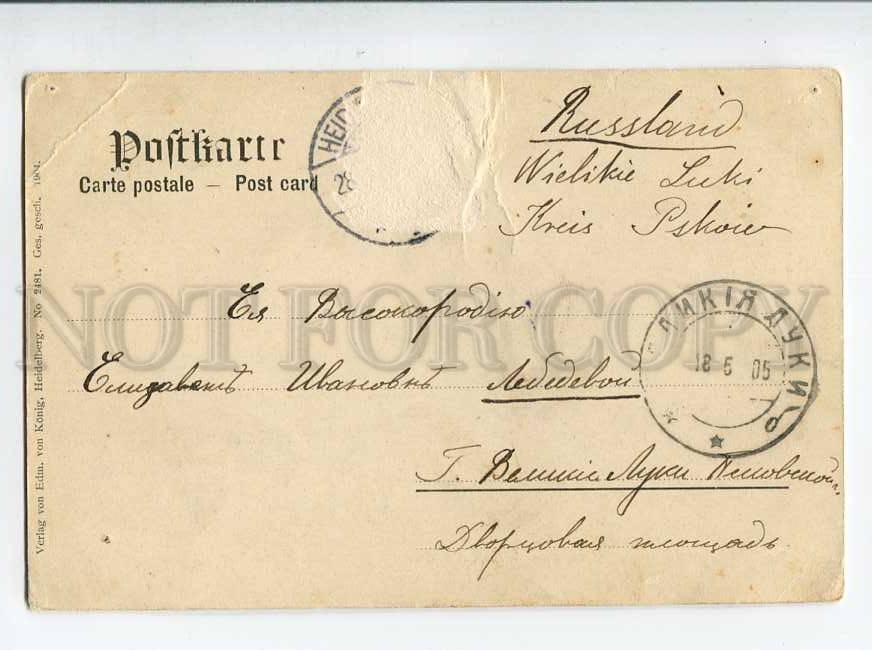 Postkarte
Carte postale — Post card
HEID
28
Russland
Wielikie Luki
Kreis Pskow
Ея Высокородію
Елизаветѣ Ивановнѣ Лебедевой
Г. Великіе Луки Псковской г.
Дворцовая площадь.
ЛИКІЯ ЛУКИ
18 5 05
Verlag von Edm. von König, Heidelberg. No 2481. Ges. gesch. 1904.
NOT FOR COPY